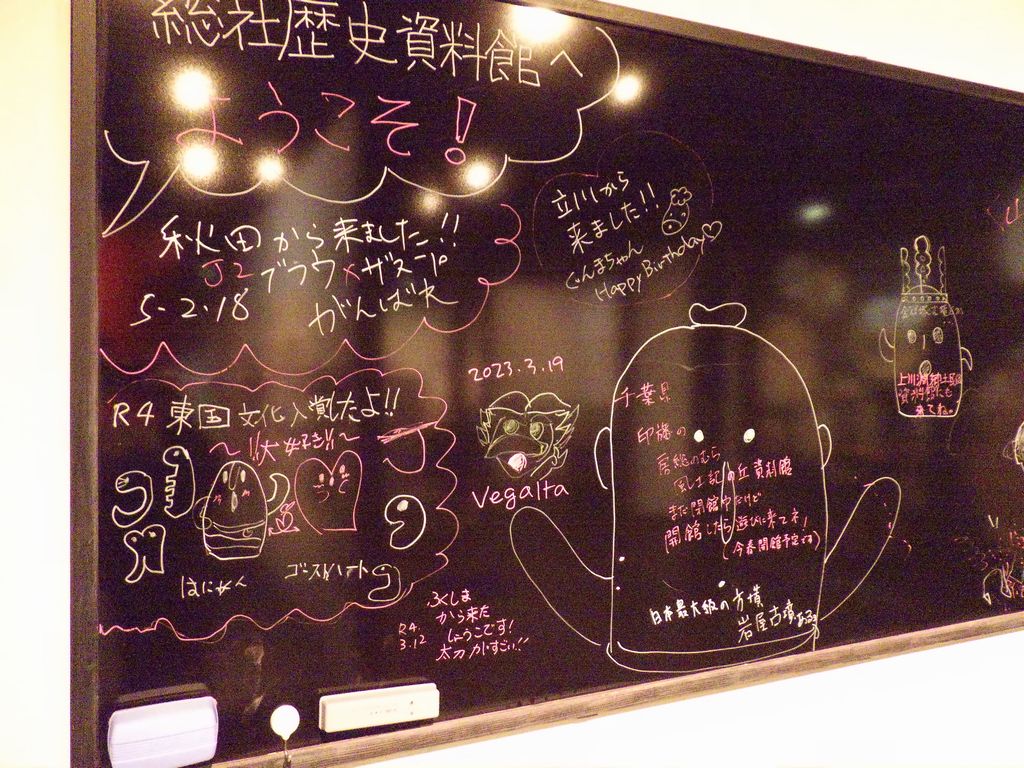 総社歴史資料館へ
ようこそ!
秋田から来ました!!
J2 ブラウ
5.2.18 がんばれ
立川から
来ました!!
ぐんまちゃん
Happy Birthday♡
R4 東国文化入賞したよ!!
~!!大好き!!~
はにわくん
ゴーストハート
2023.3.19
Vegalta
ふくしま
から来た
R4.
3.12
太刀がすごい!!
千葉県
印旛の
房総のむら
風土記の丘資料館
まだ閉館中だけど
開館したら遊びに来てネ!
(今春開館予定です)
日本最大級の方墳
岩屋古墳
資料館にも
来てね。